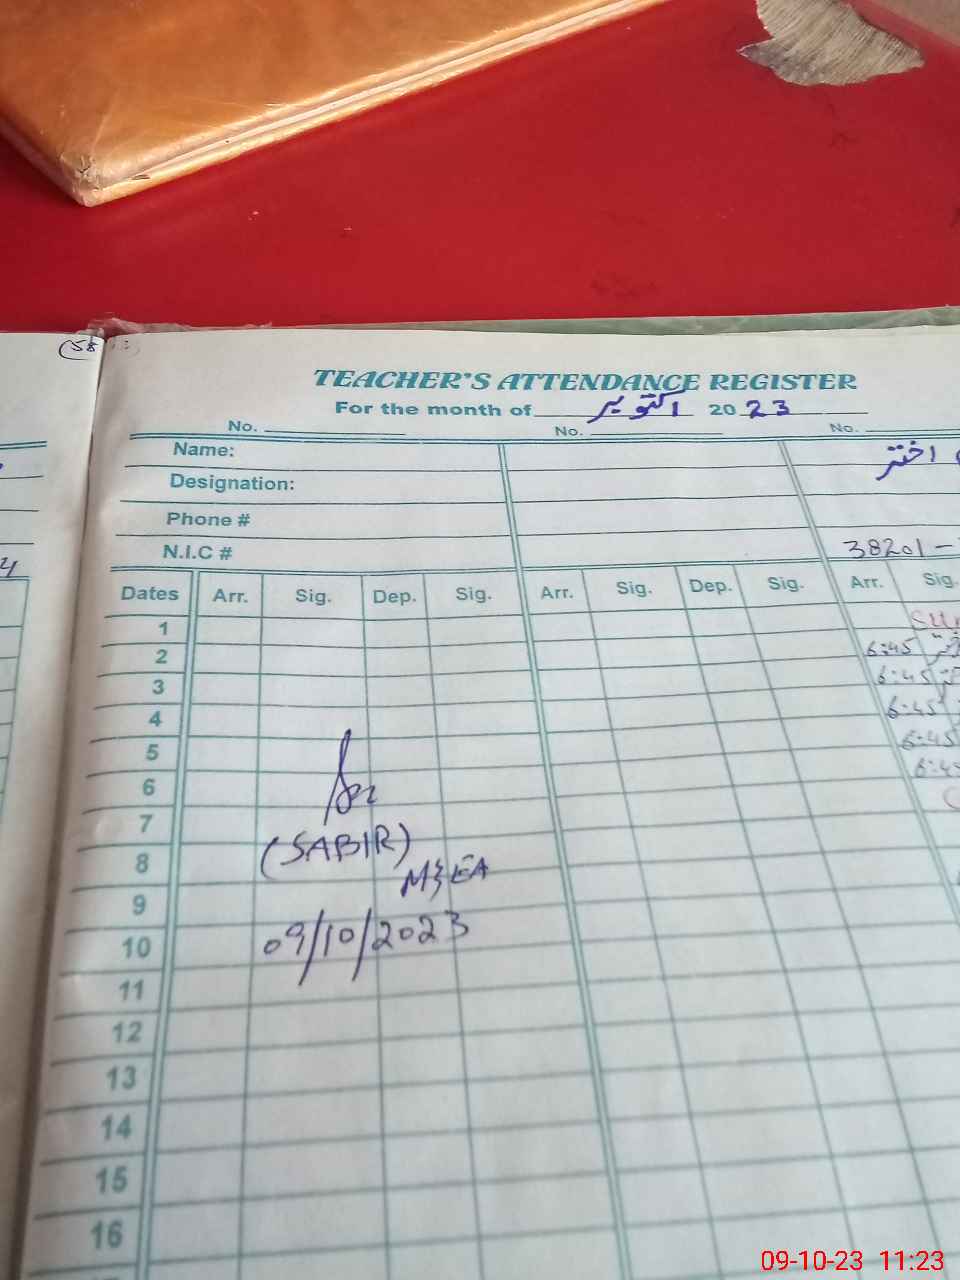 (58
TEACHER'S ATTENDANCE REGISTER
For the month of اکتوبر 2023
No. No. No.
Name: اختر
Designation:
Phone #
N.I.C # 38201-
Dates Arr. Sig. Dep. Sig. Arr. Sig. Dep. Sig. Arr. Sig.
1
2 6:45
3 6:45
4 6:45
5 6:45
6 6:45
7
(SABIR)
8
M&EA
9
09/10/2023
10
11
12
13
14
15
16
09-10-23 11:23